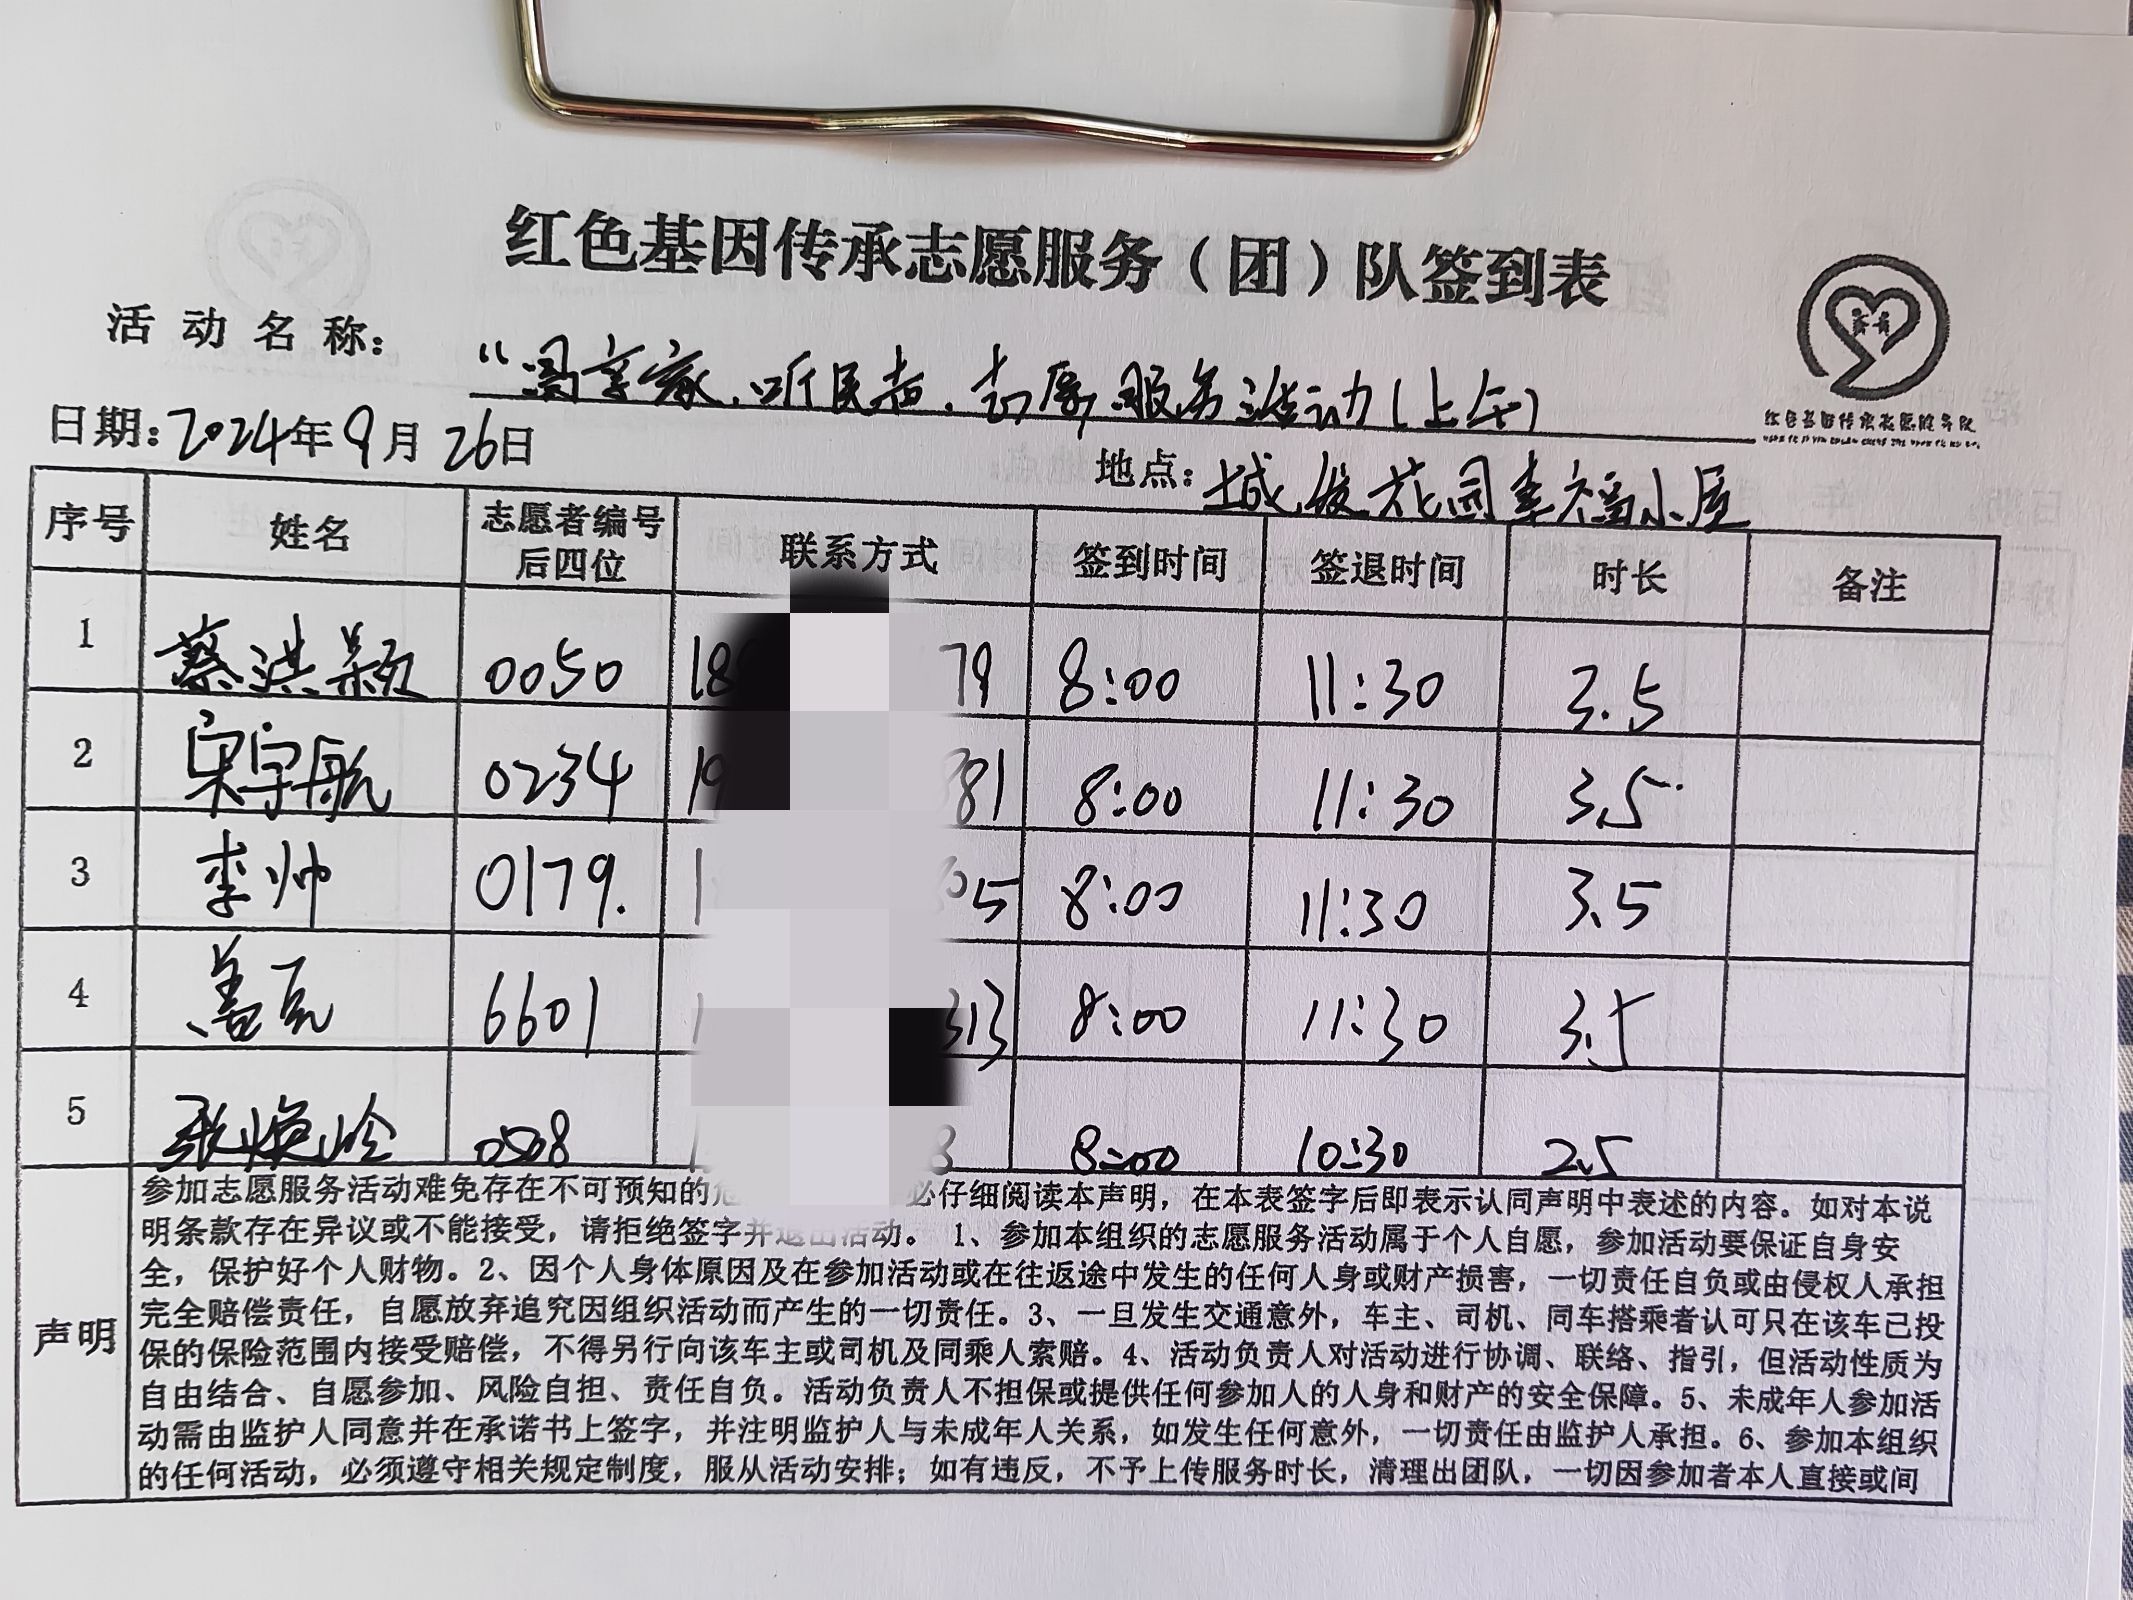 红色基因传承志愿服务（团）队签到表
活动名称： 志愿服务活动(上午)
红色基因传承志愿服务队
日期：2024年9月26日
地点：城投花园幸福小屋
序号 姓名 志愿者编号后四位 联系方式 签到时间 签退时间 时长 备注
1 蔡洪颖 0050 18 79 8:00 11:30 3.5
2 宋宇航 0234 19 81 8:00 11:30 3.5
3 李帅 0179. 1 05 8:00 11:30 3.5
4 6601 1 313 8:00 11:30 3.5
5 张焕岭 8:00 10:30 2.5
声明
参加志愿服务活动难免存在不可预知的危 必仔细阅读本声明，在本表签字后即表示认同声明中表述的内容。如对本说
明条款存在异议或不能接受，请拒绝签字并退出活动。 1、参加本组织的志愿服务活动属于个人自愿，参加活动要保证自身安
全，保护好个人财物。2、因个人身体原因及在参加活动或在往返途中发生的任何人身或财产损害，一切责任自负或由侵权人承担
完全赔偿责任，自愿放弃追究因组织活动而产生的一切责任。3、一旦发生交通意外，车主、司机、同车搭乘者认可只在该车已投
保的保险范围内接受赔偿，不得另行向该车主或司机及同乘人索赔。4、活动负责人对活动进行协调、联络、指引，但活动性质为
自由结合、自愿参加、风险自担、责任自负。活动负责人不担保或提供任何参加人的人身和财产的安全保障。5、未成年人参加活
动需由监护人同意并在承诺书上签字，并注明监护人与未成年人关系，如发生任何意外，一切责任由监护人承担。6、参加本组织
的任何活动，必须遵守相关规定制度，服从活动安排；如有违反，不予上传服务时长，清理出团队，一切因参加者本人直接或间